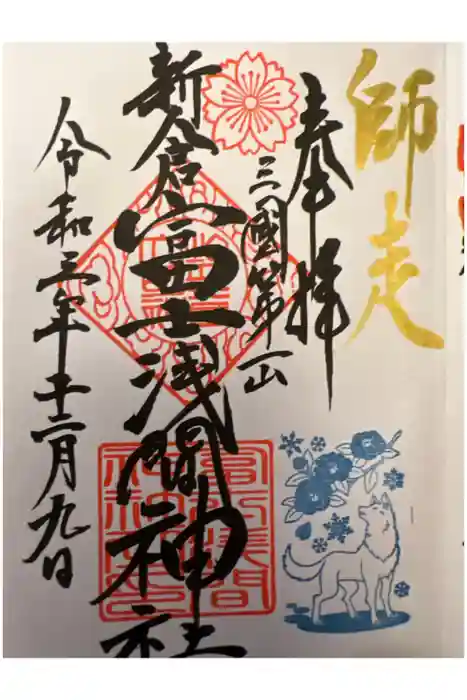 師走
奉拝
三國第一山
新倉富士浅間神社
令和三年十二月九日